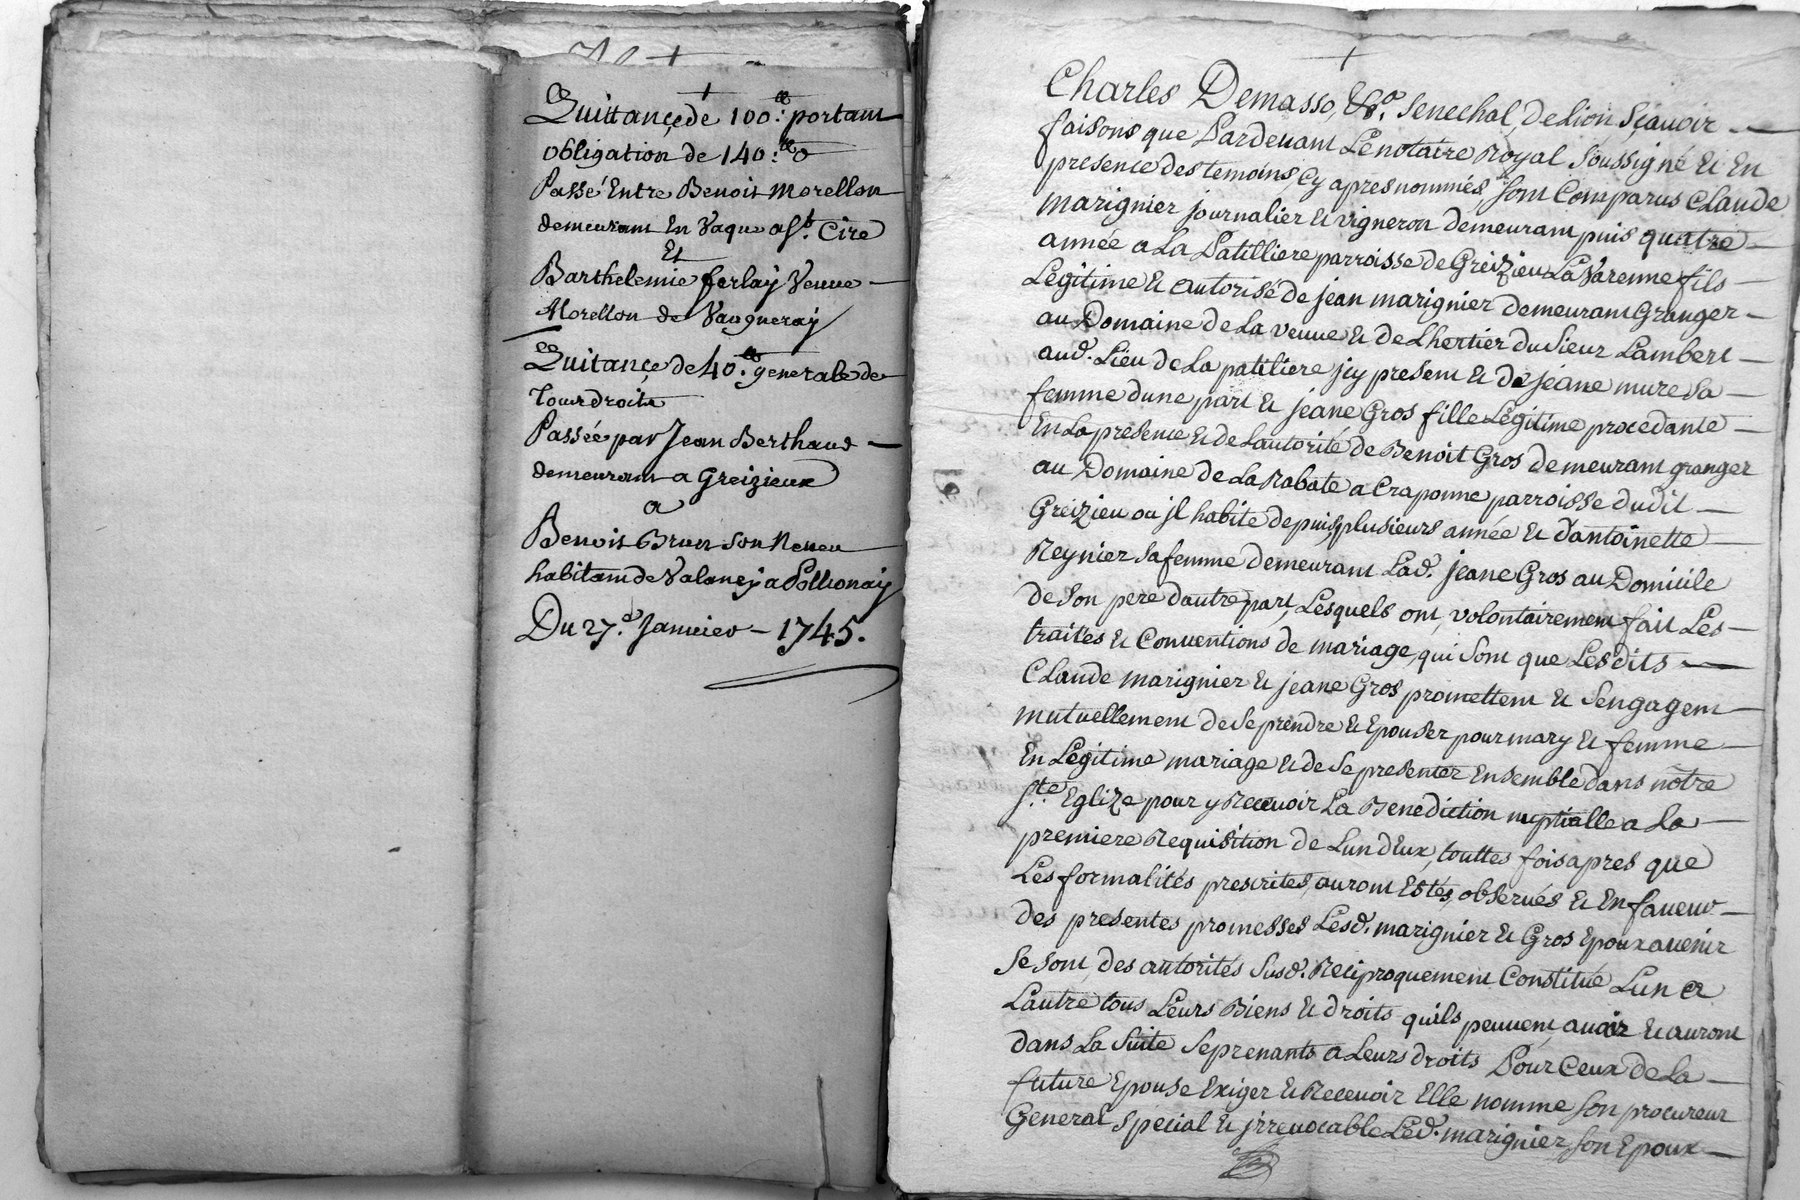 Quittance de 100.# portant
obligation de 140.#
Passé Entre Benoit Morellon
demeurant En Vaque a St. Cire
Et
Barthelemie ferlay Veuve
Morellon de Vaugneray
Quitance de 40.# generale de
tous droits
Passée par Jean Berthaud
demeurant a Greizieux
a
Benoit Brun son Neveu
habitant de Valancy a Pollionay
Du 27.e Janvier - 1745.
Charles Demasso, &a. Senechal, de Lion, sçauoir
faisons que Pardeuant Le notaire Royal soussigné & En
presence des temoins, cy apres nommés, sont Comparus Claude
marignier journalier & vigneron demeurant puis quatre
année a La Patilliere parroisse de Greizieu La Varenne fils
Legitime & autorisé de jean marignier demeurant Granger
au Domaine de La veuue & de Lheritier du Sieur Lambert
aud. Lieu de La patiliere jcy present & de jeane mure sa
femme dune part & jeane Gros fille Légitime procedante
En La presence & de Lautorité de Benoit Gros demeurant granger
au Domaine de La Rabate a Craponne parroisse dudit
Greizieu ou jl habite depuis plusieurs année & dantoinette
Reynier sa femme demeurant Lad. jeane Gros au Domicile
de son pere dautre part, Lesquels ont, volontairement fait Les
traites & Conuentions de mariage, qui sont que Lesdits
Claude marignier & jeane Gros promettent & sengagent
mutuellement de se prendre & Epouser pour mary & femme
En Légitime mariage & de se presenter Ensemble dans nôtre
ste. Eglize pour y Receuoir La Benediction nuptialle a La
premiere Requisition de Lun dEux, touttes fois apres que
Les formalités prescrites, auront Estés, obserués & En faueur
des presentes promesses Lesd. marignier & Gros Epoux auenir
se sont, des autorités susd. Reciproquement Constitué Lun a
Lautre tous Leurs Biens & droits quils peuuent auoir & auront
dans La suite se prenants a Leurs droits Pour Ceux de La
future Epouse Exiger & Receuoir Elle nomme son procureur
General special & jrreuocable Led. marignier son Epoux